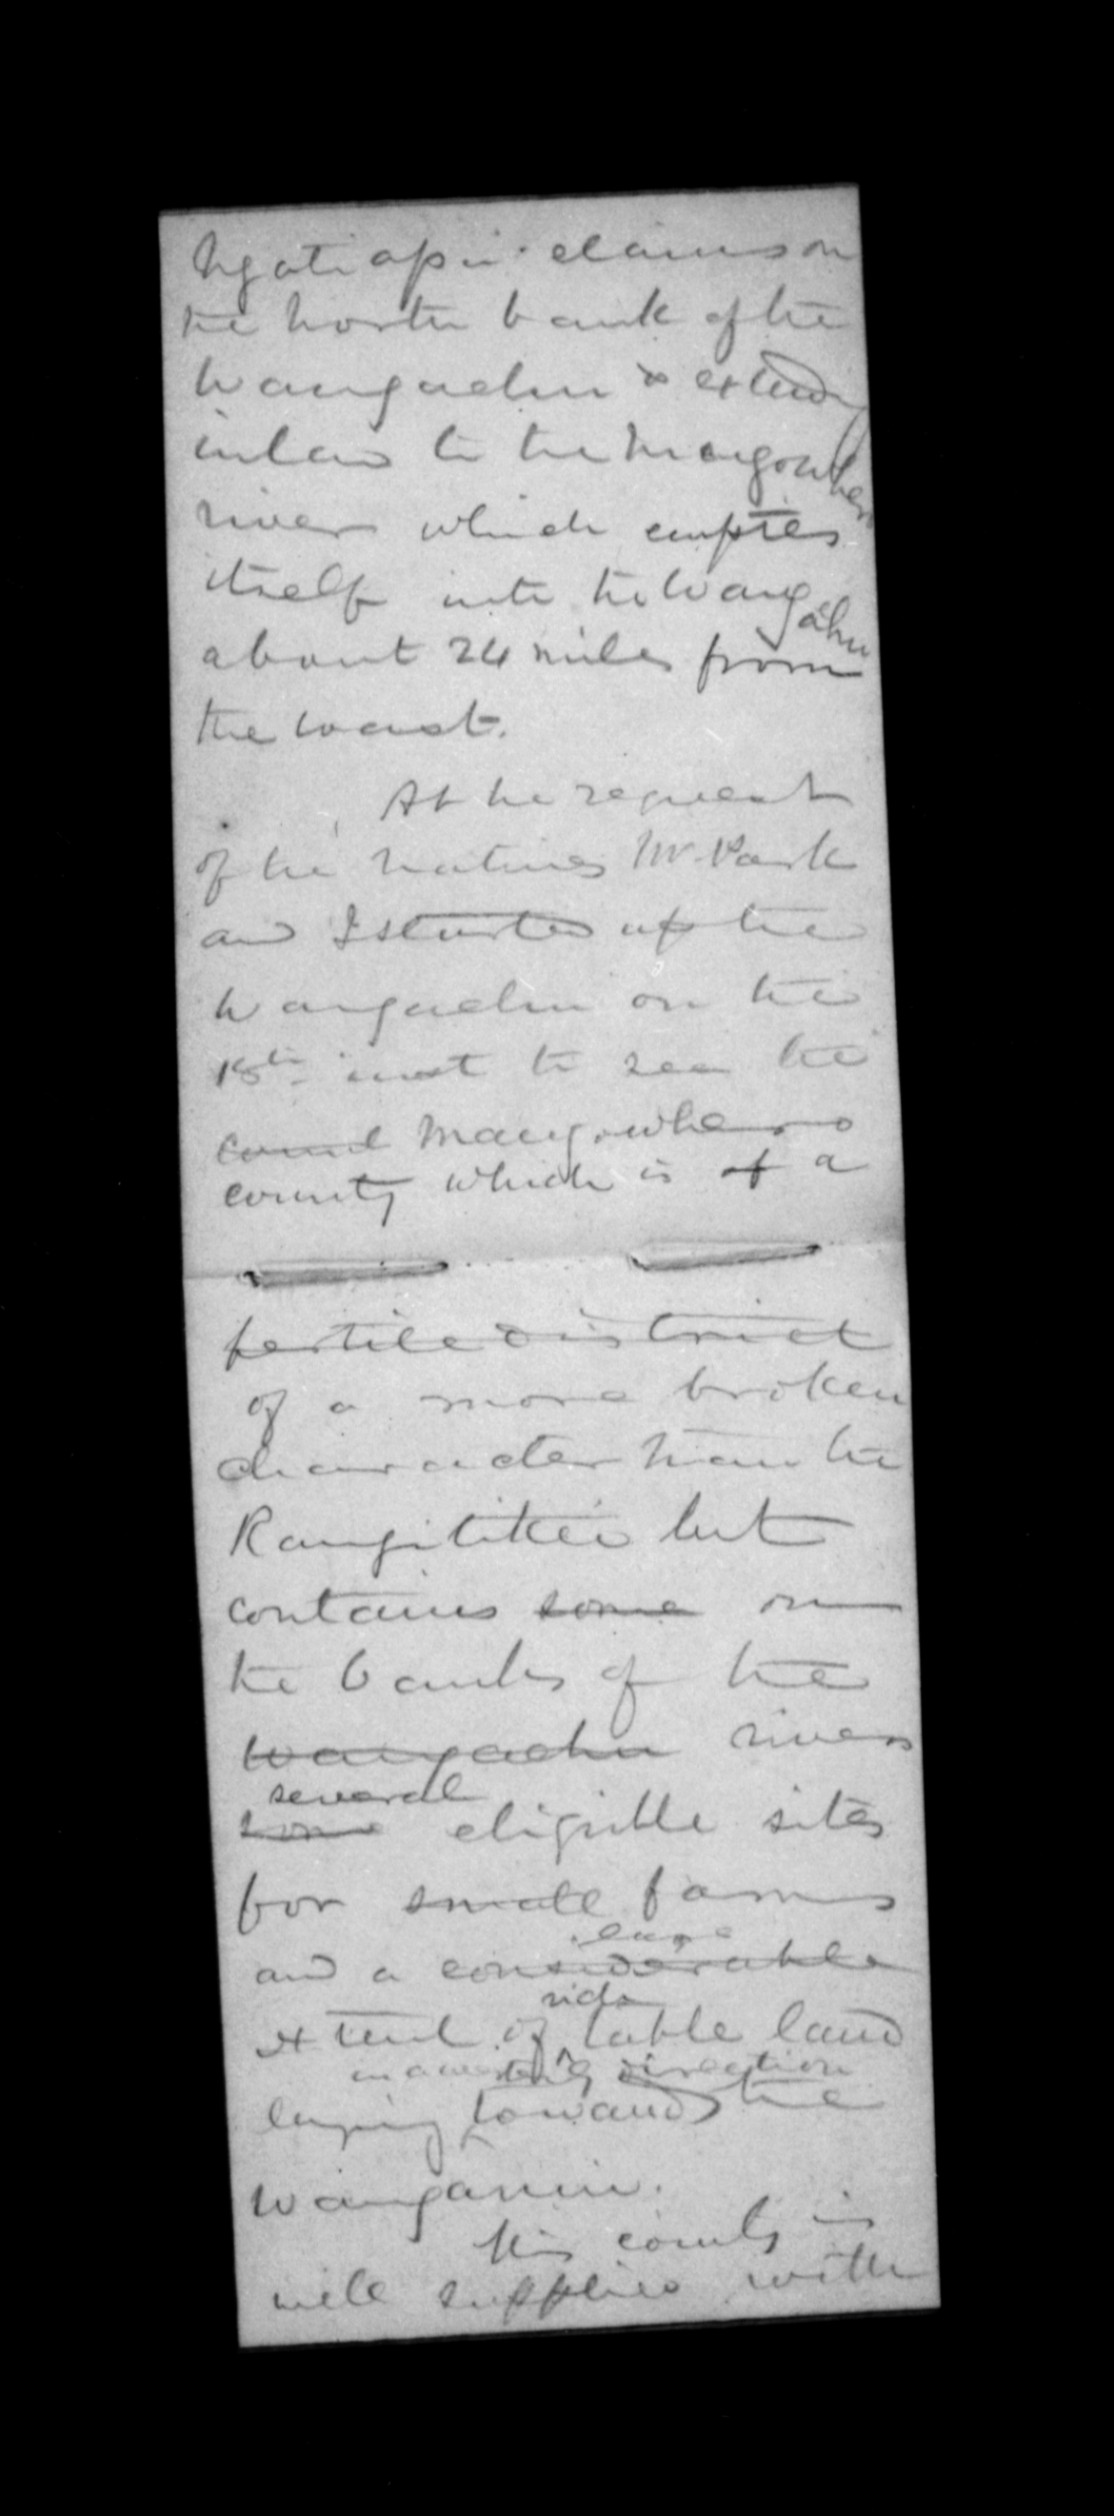 Ngatiapi claims on
the north bank of the
Wangaehu & extends
inland to the Mangowhero
river which empties
itself into the Wangaehu
about 24 miles from
the coast.
At the request
of the natives Mr Park
and I started up the
Wangaehu on the
18th inst to see the
Mangowhero
county which is of a
fertile district
of a more broken
character than the
Rangitikei but
contains some on
the banks of the
Wangaehu rivers
several
some eligible sites
for small farms
large
and a considerable
rich
extent of table land
in a westerly direction
laying towards the
Wanganui.
This county is
well supplied with